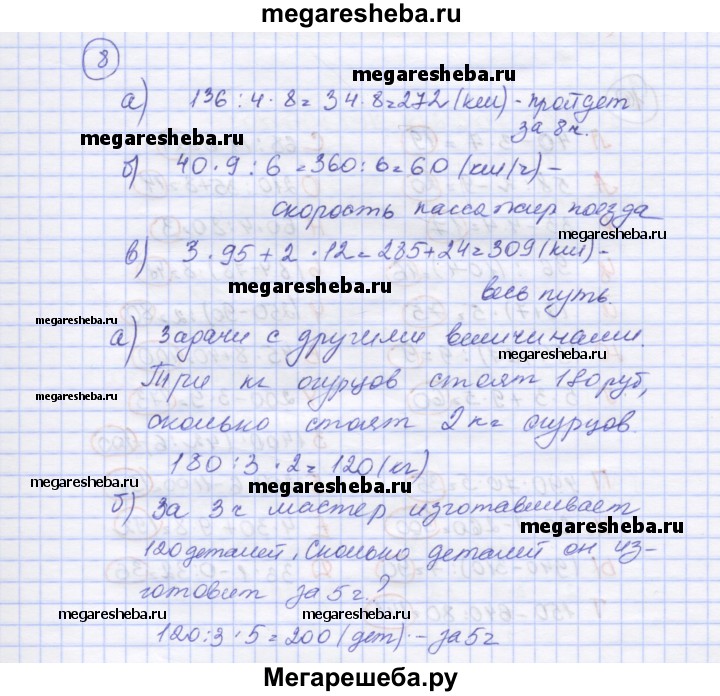 megaresheba.ru
8
megaresheba.ru
а) 136 : 4 · 8 = 34 · 8 = 272 (км) - пройдет
за 8 ч.
megaresheba.ru
б) 40 · 9 : 6 = 360 : 6 = 60 (км/ч) -
скорость пассажир поезда
megaresheba.ru
в) 3 · 95 + 2 · 12 = 285 + 24 = 309 (км) -
megaresheba.ru
весь путь.
megaresheba.ru
а) Задачи с другими величинами.
megaresheba.ru
Три кг огурцов стоят 180 руб,
megaresheba.ru
сколько стоят 2 кг огурцов.
180 : 3 · 2 = 120 (кг)
megaresheba.ru
megaresheba.ru
б) За 3 ч мастер изготавливает
megaresheba.ru
120 деталей. Сколько деталей он из-
готовит за 5 ч.?
megaresheba.ru
megaresheba.ru
megaresheba.ru
120 : 3 · 5 = 200 (дет) - за 5 ч
Мегарешеба.ру